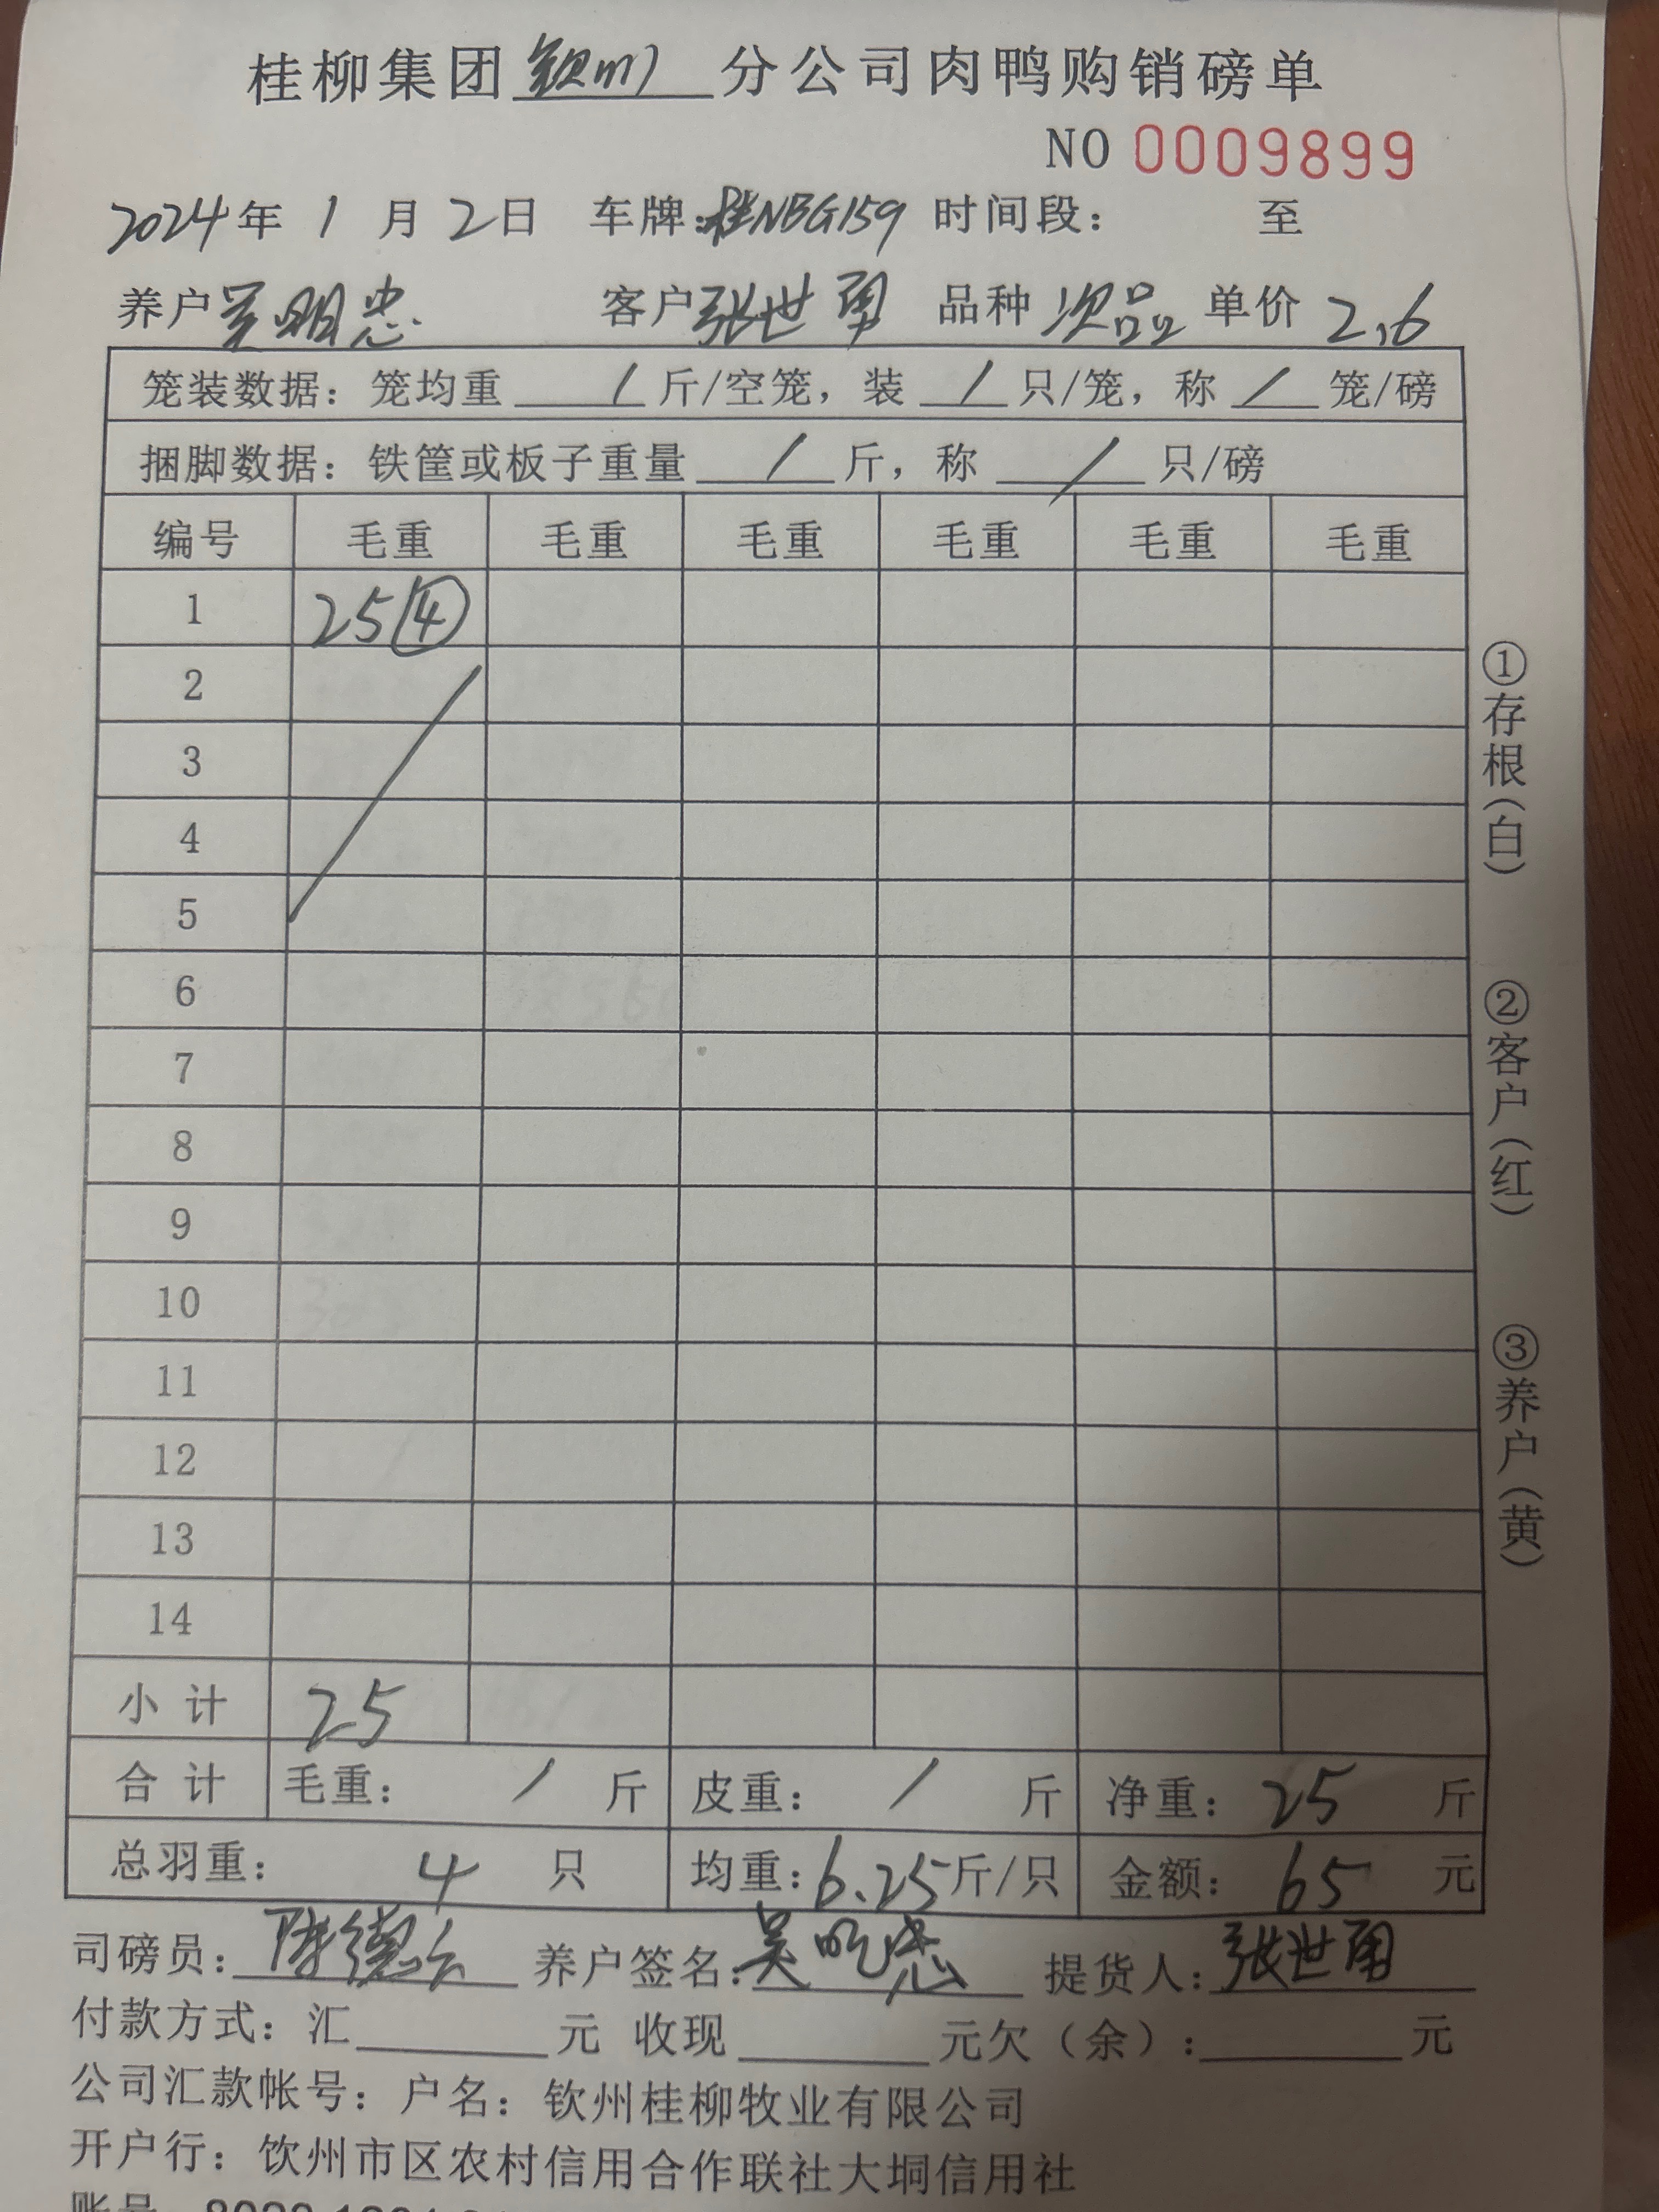 桂柳集团钦州分公司肉鸭购销磅单
NO 0009899
2024年 1 月 2日 车牌:桂NBG159 时间段: 至
养户吴明忠 客户张世勇 品种 次品 单价 2.6
笼装数据: 笼均重 / 斤/空笼, 装 / 只/笼, 称 / 笼/磅
捆脚数据: 铁筐或板子重量 / 斤, 称 / 只/磅
编号 毛重 毛重 毛重 毛重 毛重 毛重
1 25④
2
3
4
5
6
7
8
9
10
11
12
13
14
小计 25
合计 毛重: / 斤 皮重: / 斤 净重: 25 斤
总羽重: 4 只 均重:6.25斤/只 金额: 65 元
司磅员: 陈德云 养户签名:吴明忠 提货人:张世勇
付款方式: 汇 元 收现 元欠(余): 元
公司汇款帐号: 户名: 钦州桂柳牧业有限公司
开户行: 饮州市区农村信用合作联社大垌信用社
①存根(白)
②客户(红)
③养户(黄)